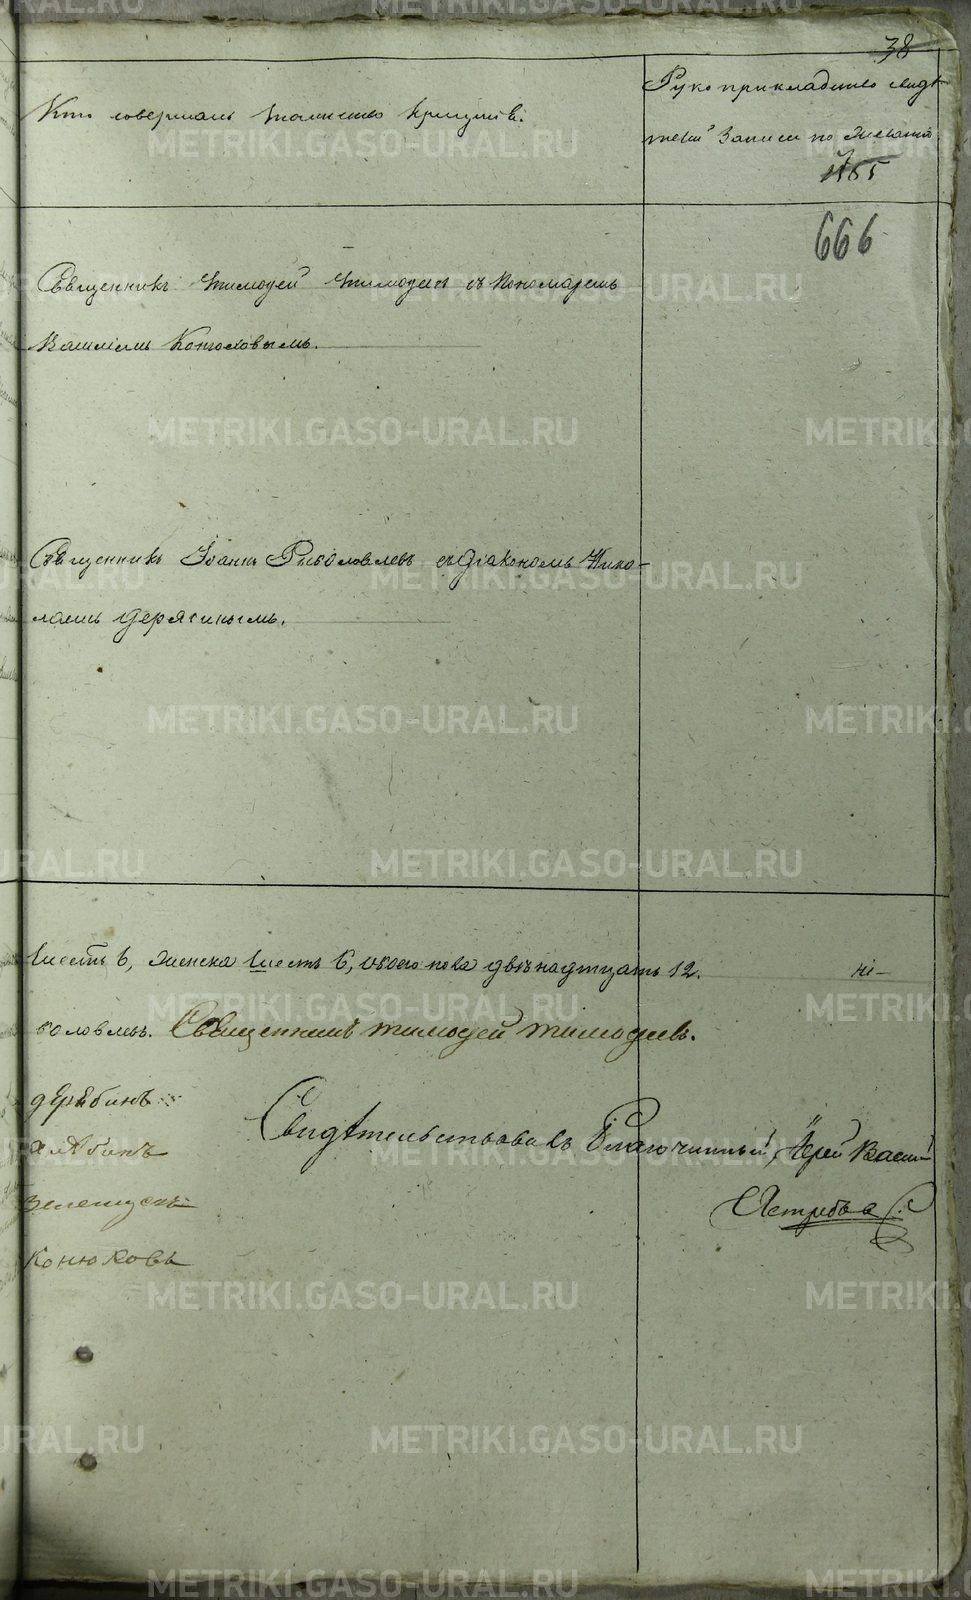 38
Кто совершалъ таинство крещенія.
Рукоприкладство свидѣ-
телей записи по желанію
666
Священникъ Тимофей Тимофеевъ съ пономаремъ
Василіемъ Конюховымъ.
Священникъ Іоаннъ Рыболовлевъ съ діакономъ Нико-
лаемъ Дерябинымъ.
шесть 6, женска шесть 6, обоего пола двѣнадцать 12.
боловлевъ. Священникъ Тимофей Тимофеевъ.
Дерябинъ
Свидѣтельствовалъ Благочинный, Іерей Васил
Ястребовъ
Конюховъ
METRIKI.GASO-URAL.RU